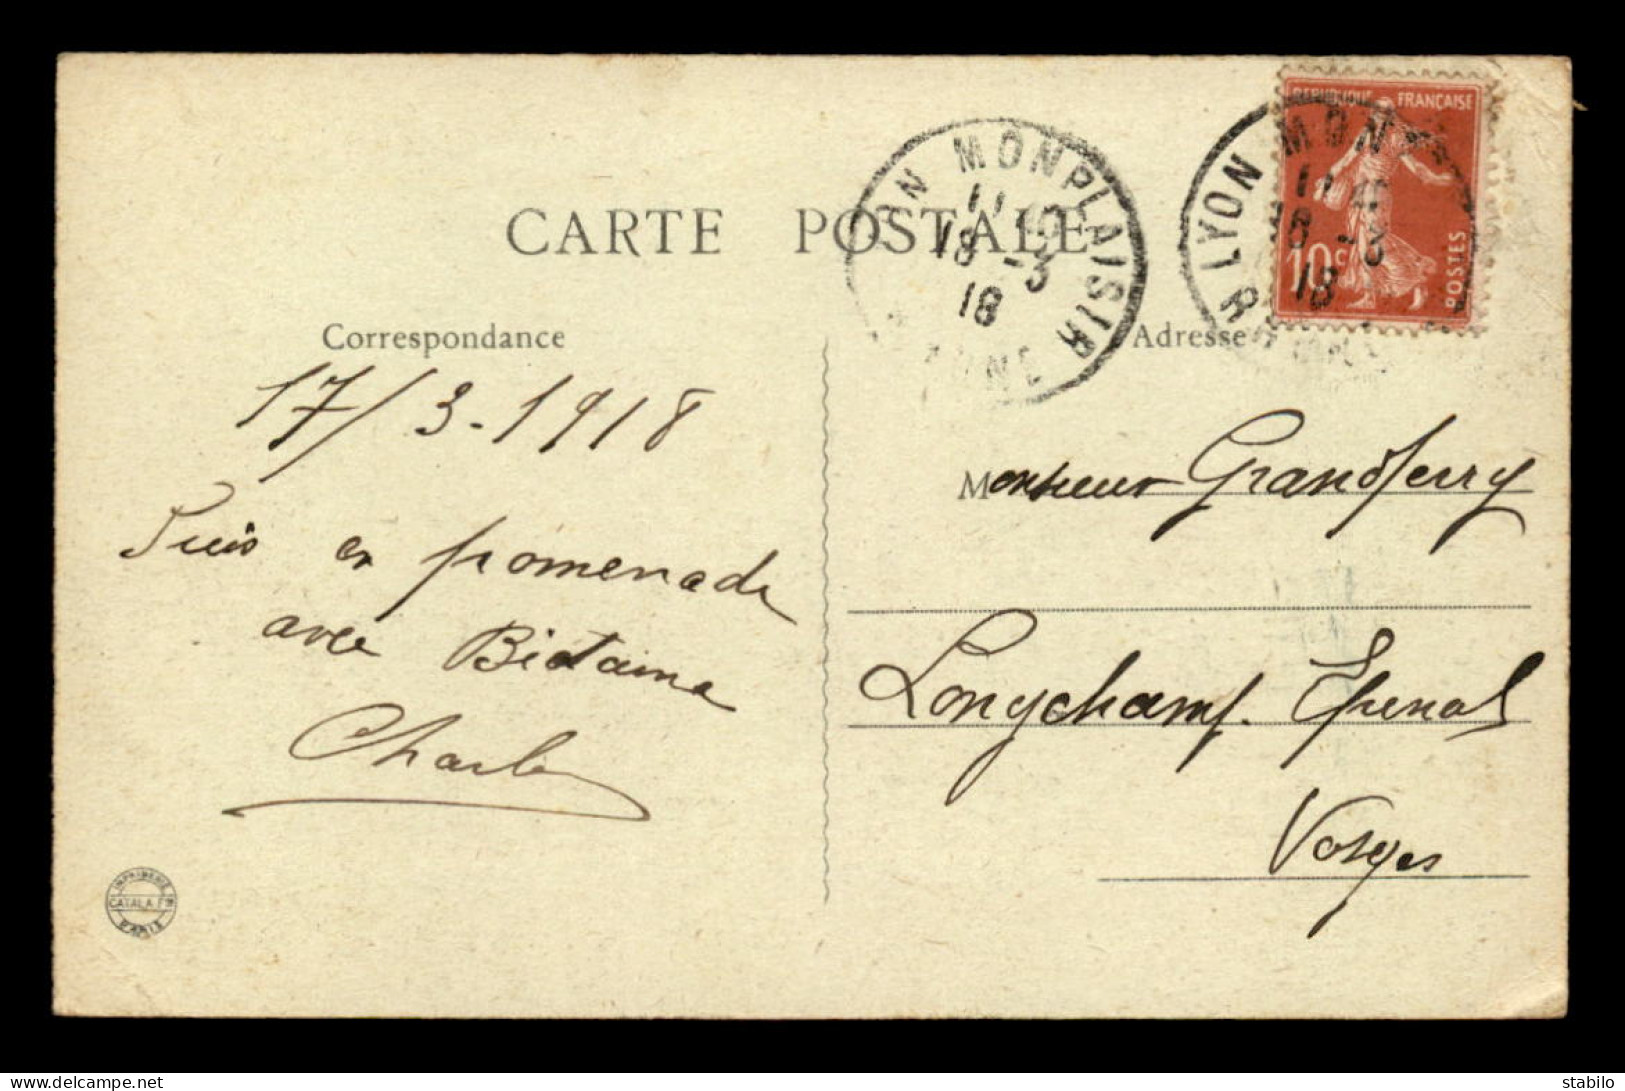 CARTE POSTALE
Correspondance
17/3-1918
Suis en promenade
avec
Charles
IMPRIMERIE
CATALA FRES
PARIS
LYON MONPLAISIR
18 -3
18
RHONE
LYON MON
18 -3
18
RÉPUBLIQUE FRANÇAISE
10c
POSTES
Adresse
Monsieur Grandferry
Longchamp. Epinal
Vosges
delcampe.net
stabilo